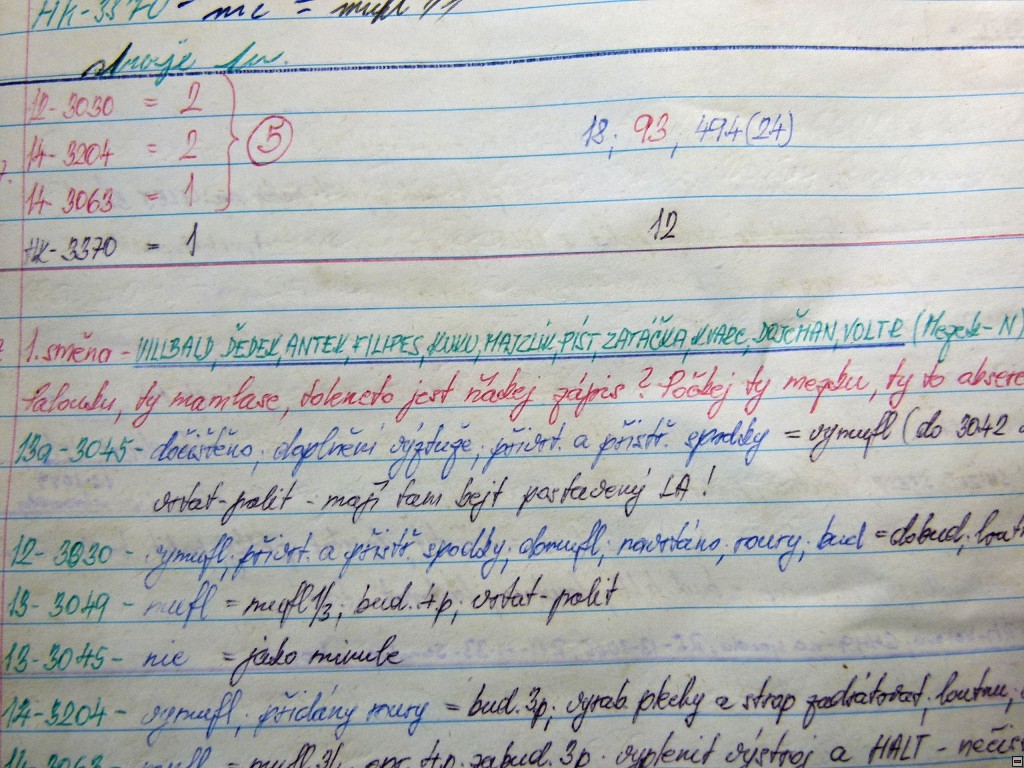 HK-3370 - nic = mufl
stroje tw.
12-3030 = 2
14-3204 = 2
14-3063 = 1
5
18, 93, 494(24)
HK-3370 = 1
12
1. směna - VILLBALD, DĚDEK, ANTEK, FILIPES, KUKU, MAJZLÍK, PÍST, ZATÁČKA, KVARC, DOJČMAN, VOLTR (Megek-N)
Paloušu, ty mamlase, tolencto jest ňákej zápis? Počkej ty megeku, ty to
13a-3045 - dočištěno, doplnění výztuže, přivrt. a přistř. spodky = vymufl (do 3042
vrtat-palit - mají tam bejt postavený LA!
12-3030 - vymufl, přivrt. a přistř spodky, domufl, navrtáno, roury, bud = dobud,
13-3049 - mufl = mufl 1/3, bud. 4.p, vrtat-palit
13-3045 - nic = jako minule
14-3204 - vymufl, přidány roury = bud. 3p, vyrab. plechy a strop zadrátovat, loutnu,
14-3063 - mufl = mufl 3/, opr. 4p. zabud. 3p. vyplenit výstroj a HALT -